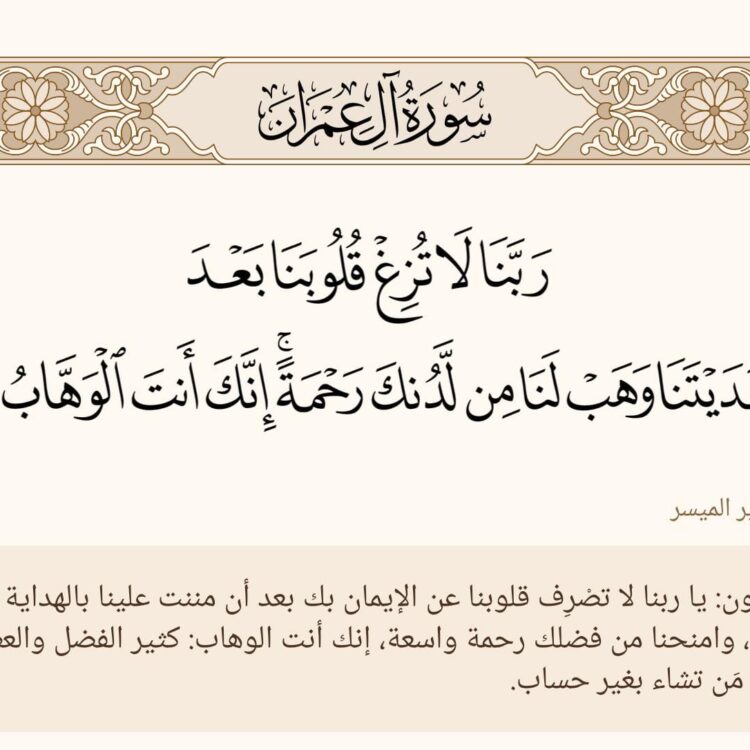 سُورَةُ آلِ عِمْرَانَ
رَبَّنَا لَا تُزِغْ قُلُوبَنَا بَعْدَ
وَهَبْ لَنَا مِن لَّدُنكَ رَحْمَةً ۚ إِنَّكَ أَنتَ ٱلْوَهَّابُ
الميسر
يا ربنا لا تصْرِف قلوبنا عن الإيمان بك بعد أن مننت علينا بالهداية
، وامنحنا من فضلك رحمة واسعة، إنك أنت الوهاب: كثير الفضل
مَن تشاء بغير حساب.